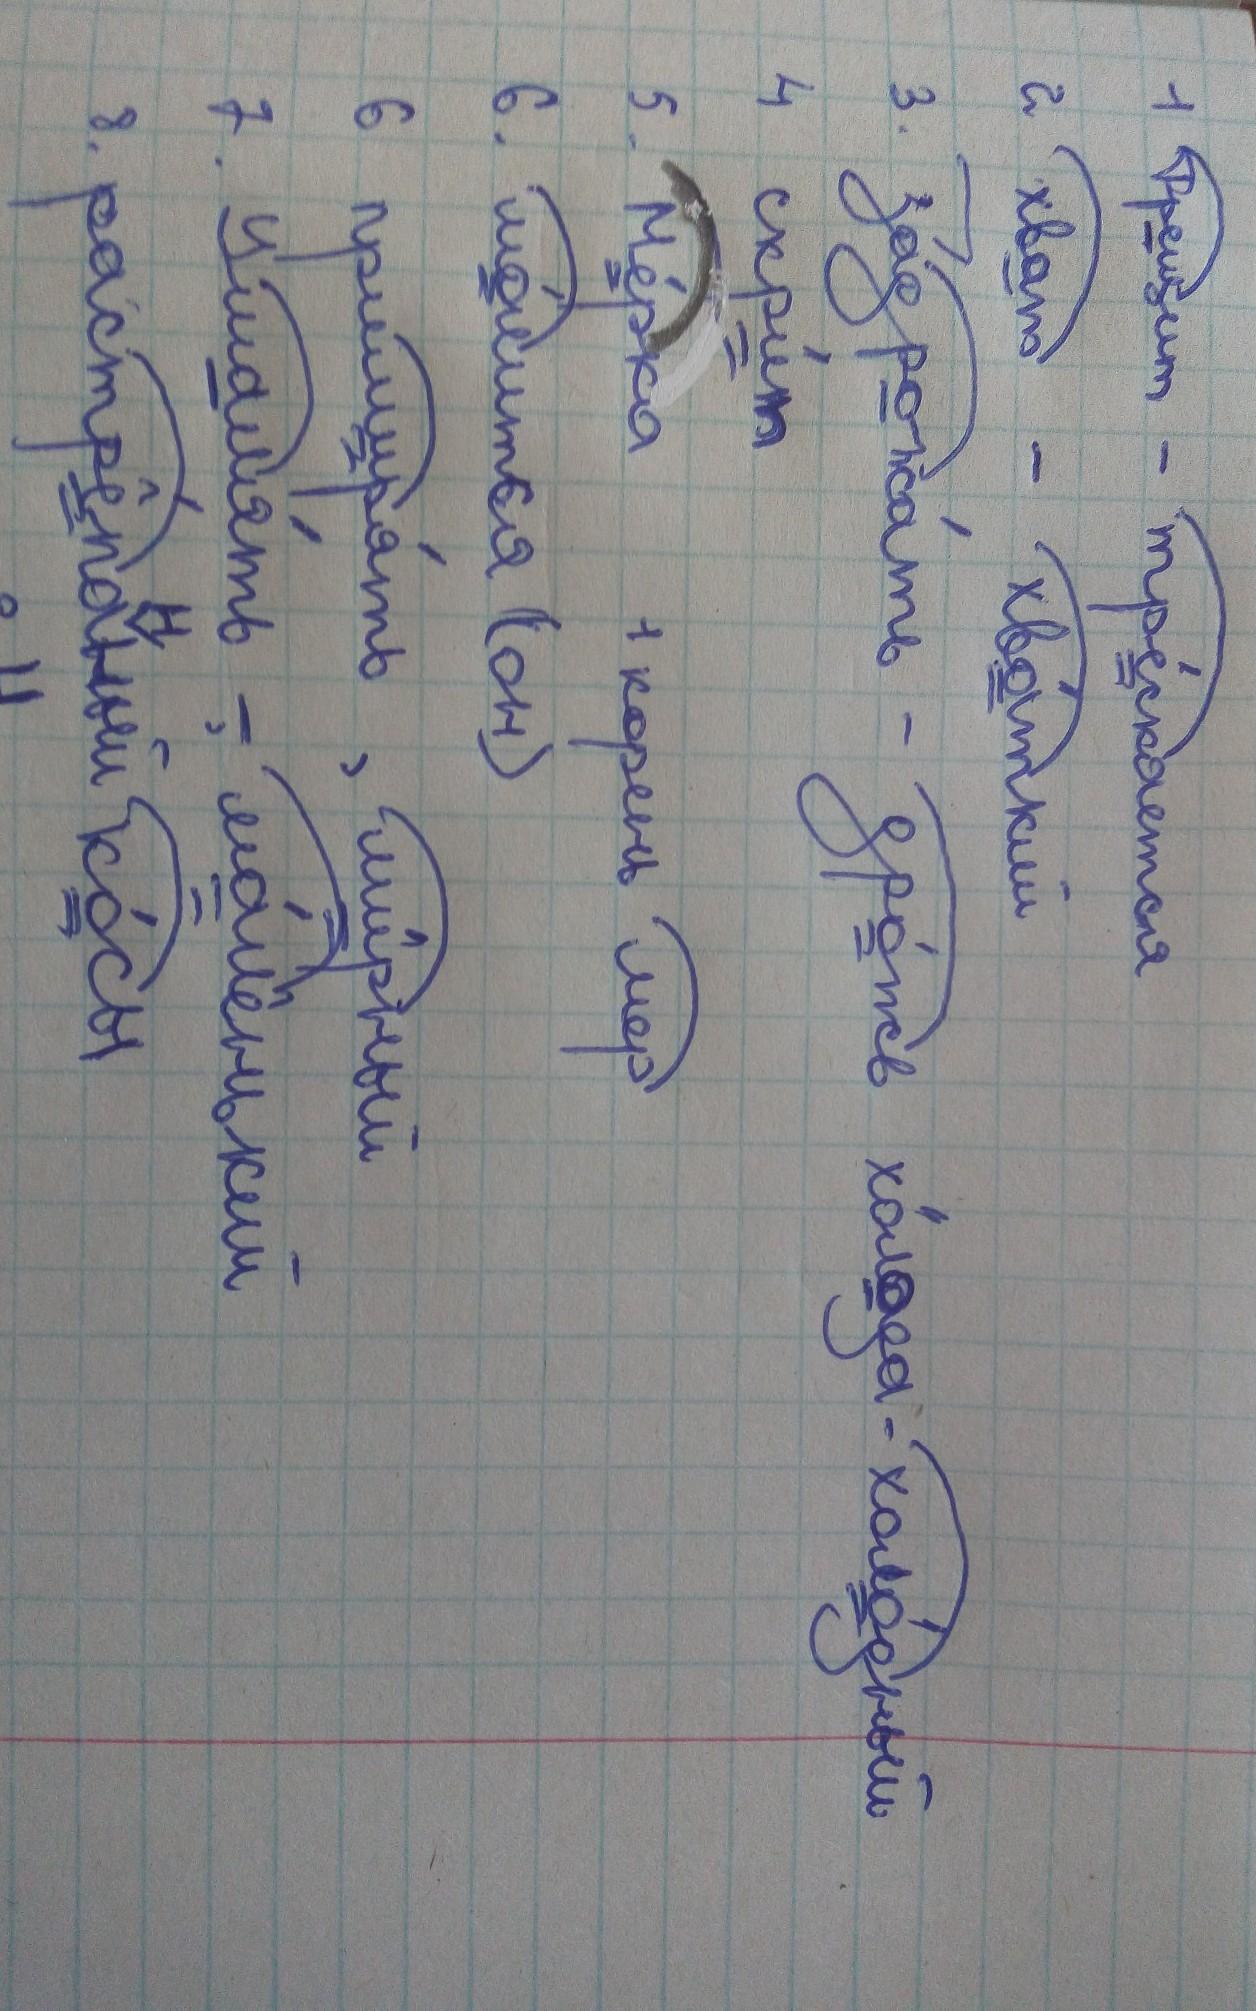 1 Трещит - трескается
2 хват - хваткий
3. задрожать - дрожь холода - холодный
4 скрип
5. Мерка 1 корень мер
6. мается (он)
6 примирять, мирный
7. умалять - маленький
8. растрёпаный н косы